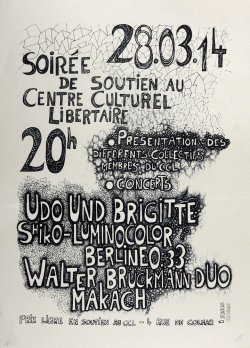 28.03.14
SOIRÉE
DE SOUTIEN AU
CENTRE CULTUREL
LIBERTAIRE
20h
• PRÉSENTATION DES
DIFFÉRENTS COLLECTIFS
MEMBRES DU CCL
• CONCERTS
UDO UND BRIGITTE
SHIKO-LUMINOCOLOR
BERLINE 0.33
WALTER BRUCKMANN DUO
MAKACH
PRIX LIBRE EN SOUTIEN AU CCL - 4 RUE DE COLMAR